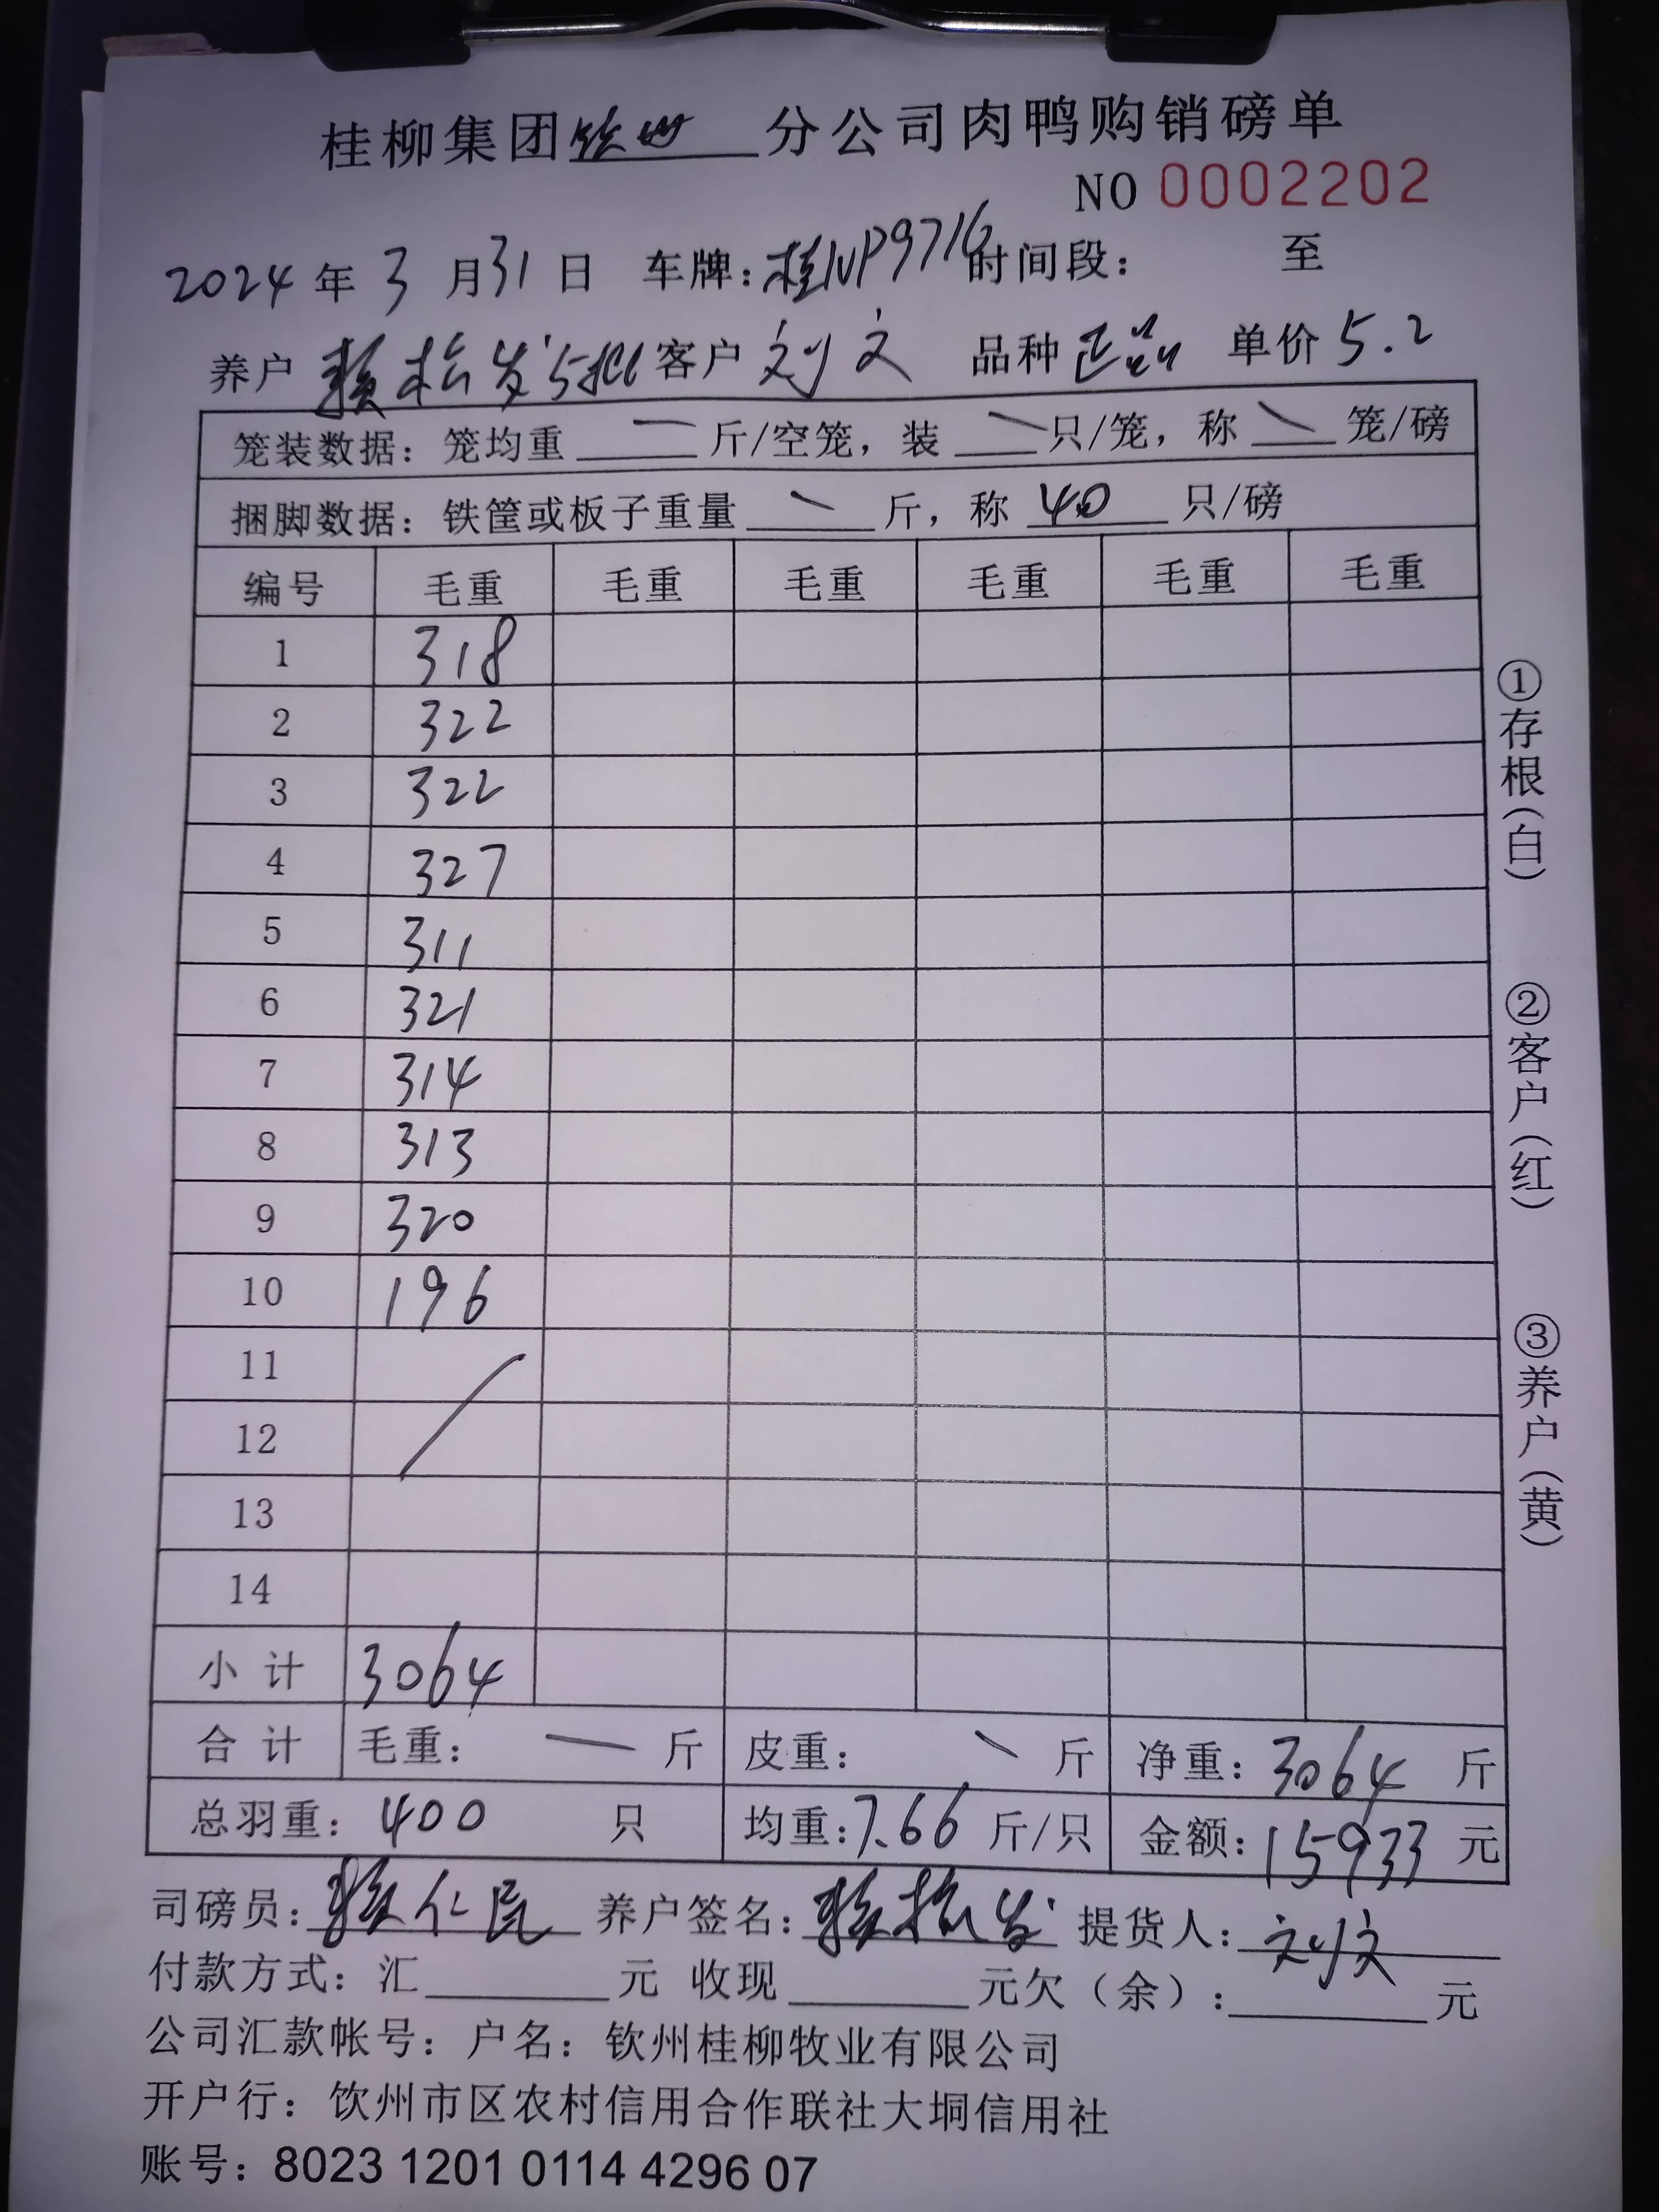 桂柳集团钦州分公司肉鸭购销磅单
NO 0002202
2024年3月31日 车牌:桂NP9716 时间段: 至
养户 赖松发5批 客户 刘文 品种 正品 单价 5.2
笼装数据: 笼均重 — 斤/空笼, 装 — 只/笼, 称 — 笼/磅
捆脚数据: 铁筐或板子重量 — 斤, 称 40 只/磅
编号 毛重 毛重 毛重 毛重 毛重 毛重
1 318
2 322
3 322
4 327
5 311
6 321
7 314
8 313
9 320
10 196
11
12
13
14
小计 3064
合计 毛重: — 斤 皮重: — 斤 净重: 3064 斤
总羽重: 400 只 均重: 7.66 斤/只 金额: 15933 元
司磅员: 赖仁民 养户签名: 赖松发 提货人: 刘文
付款方式: 汇 元 收现 元欠(余): 元
公司汇款帐号: 户名: 钦州桂柳牧业有限公司
开户行: 钦州市区农村信用合作联社大垌信用社
账号: 8023 1201 0114 4296 07
①存根(白)
②客户(红)
③养户(黄)